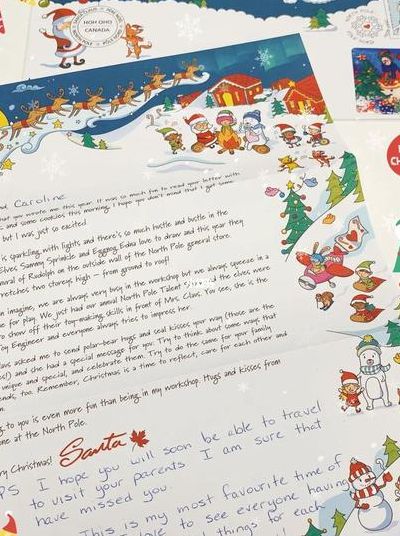 SANTA CLAUS
HOH OHO
CANADA
Caroline
that you wrote me this year. It was so much fun to read your letter with
and some cookies this morning. I hope you don't mind that I got some
but I was just so excited
is sparkling with lights and there's so much hustle and bustle in the
Elves Sammy Sprinkle and Eggnog Edna love to draw and this year they
mural of Rudolph on the outside wall of the North Pole general store.
stretches two storeys high – from ground to roof!
imagine, we are always very busy in the workshop but we always squeeze in a
e for play. We just had our annual North Pole Talent and the elves were
to show off their toy-making skills in front of Mrs. Claus. You see, she is the
Toy Engineer and everyone always tries to impress her.
aus asked me to send polar-bear hugs and seal kisses your way (those are the
es!) and she had a special message for you. Try to think about some ways that
unique and special, and celebrate them. Try to do the same for your family
ends, too. Remember, Christmas is a time to reflect, care for each other and
ng to you is even more fun than being in my workshop. Hugs and kisses from
one at the North Pole.
ry Christmas!
Santa
PS I hope you will soon be able to travel
to visit your parents. I am sure that
have missed you.
This is my most favourite time of
to see everyone having
things for each